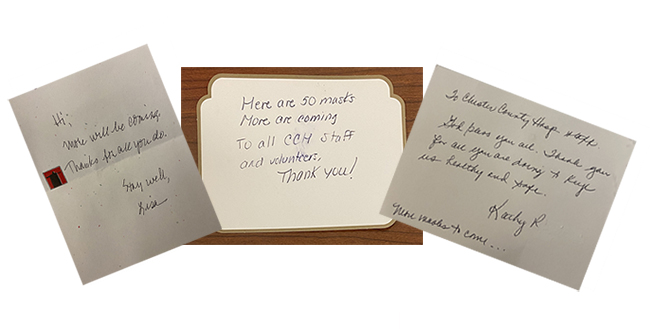 Hi,
more will be coming.
Thanks for all you do.
Stay well,
Lisa
Here are 50 masks
More are coming
To all CCH Staff
and volunteers,
Thank you!
To Chester County Hosp staff
God bless you all. Thank you
for all you are doing to keep
us healthy and safe.
Kathy R
More masks to come...